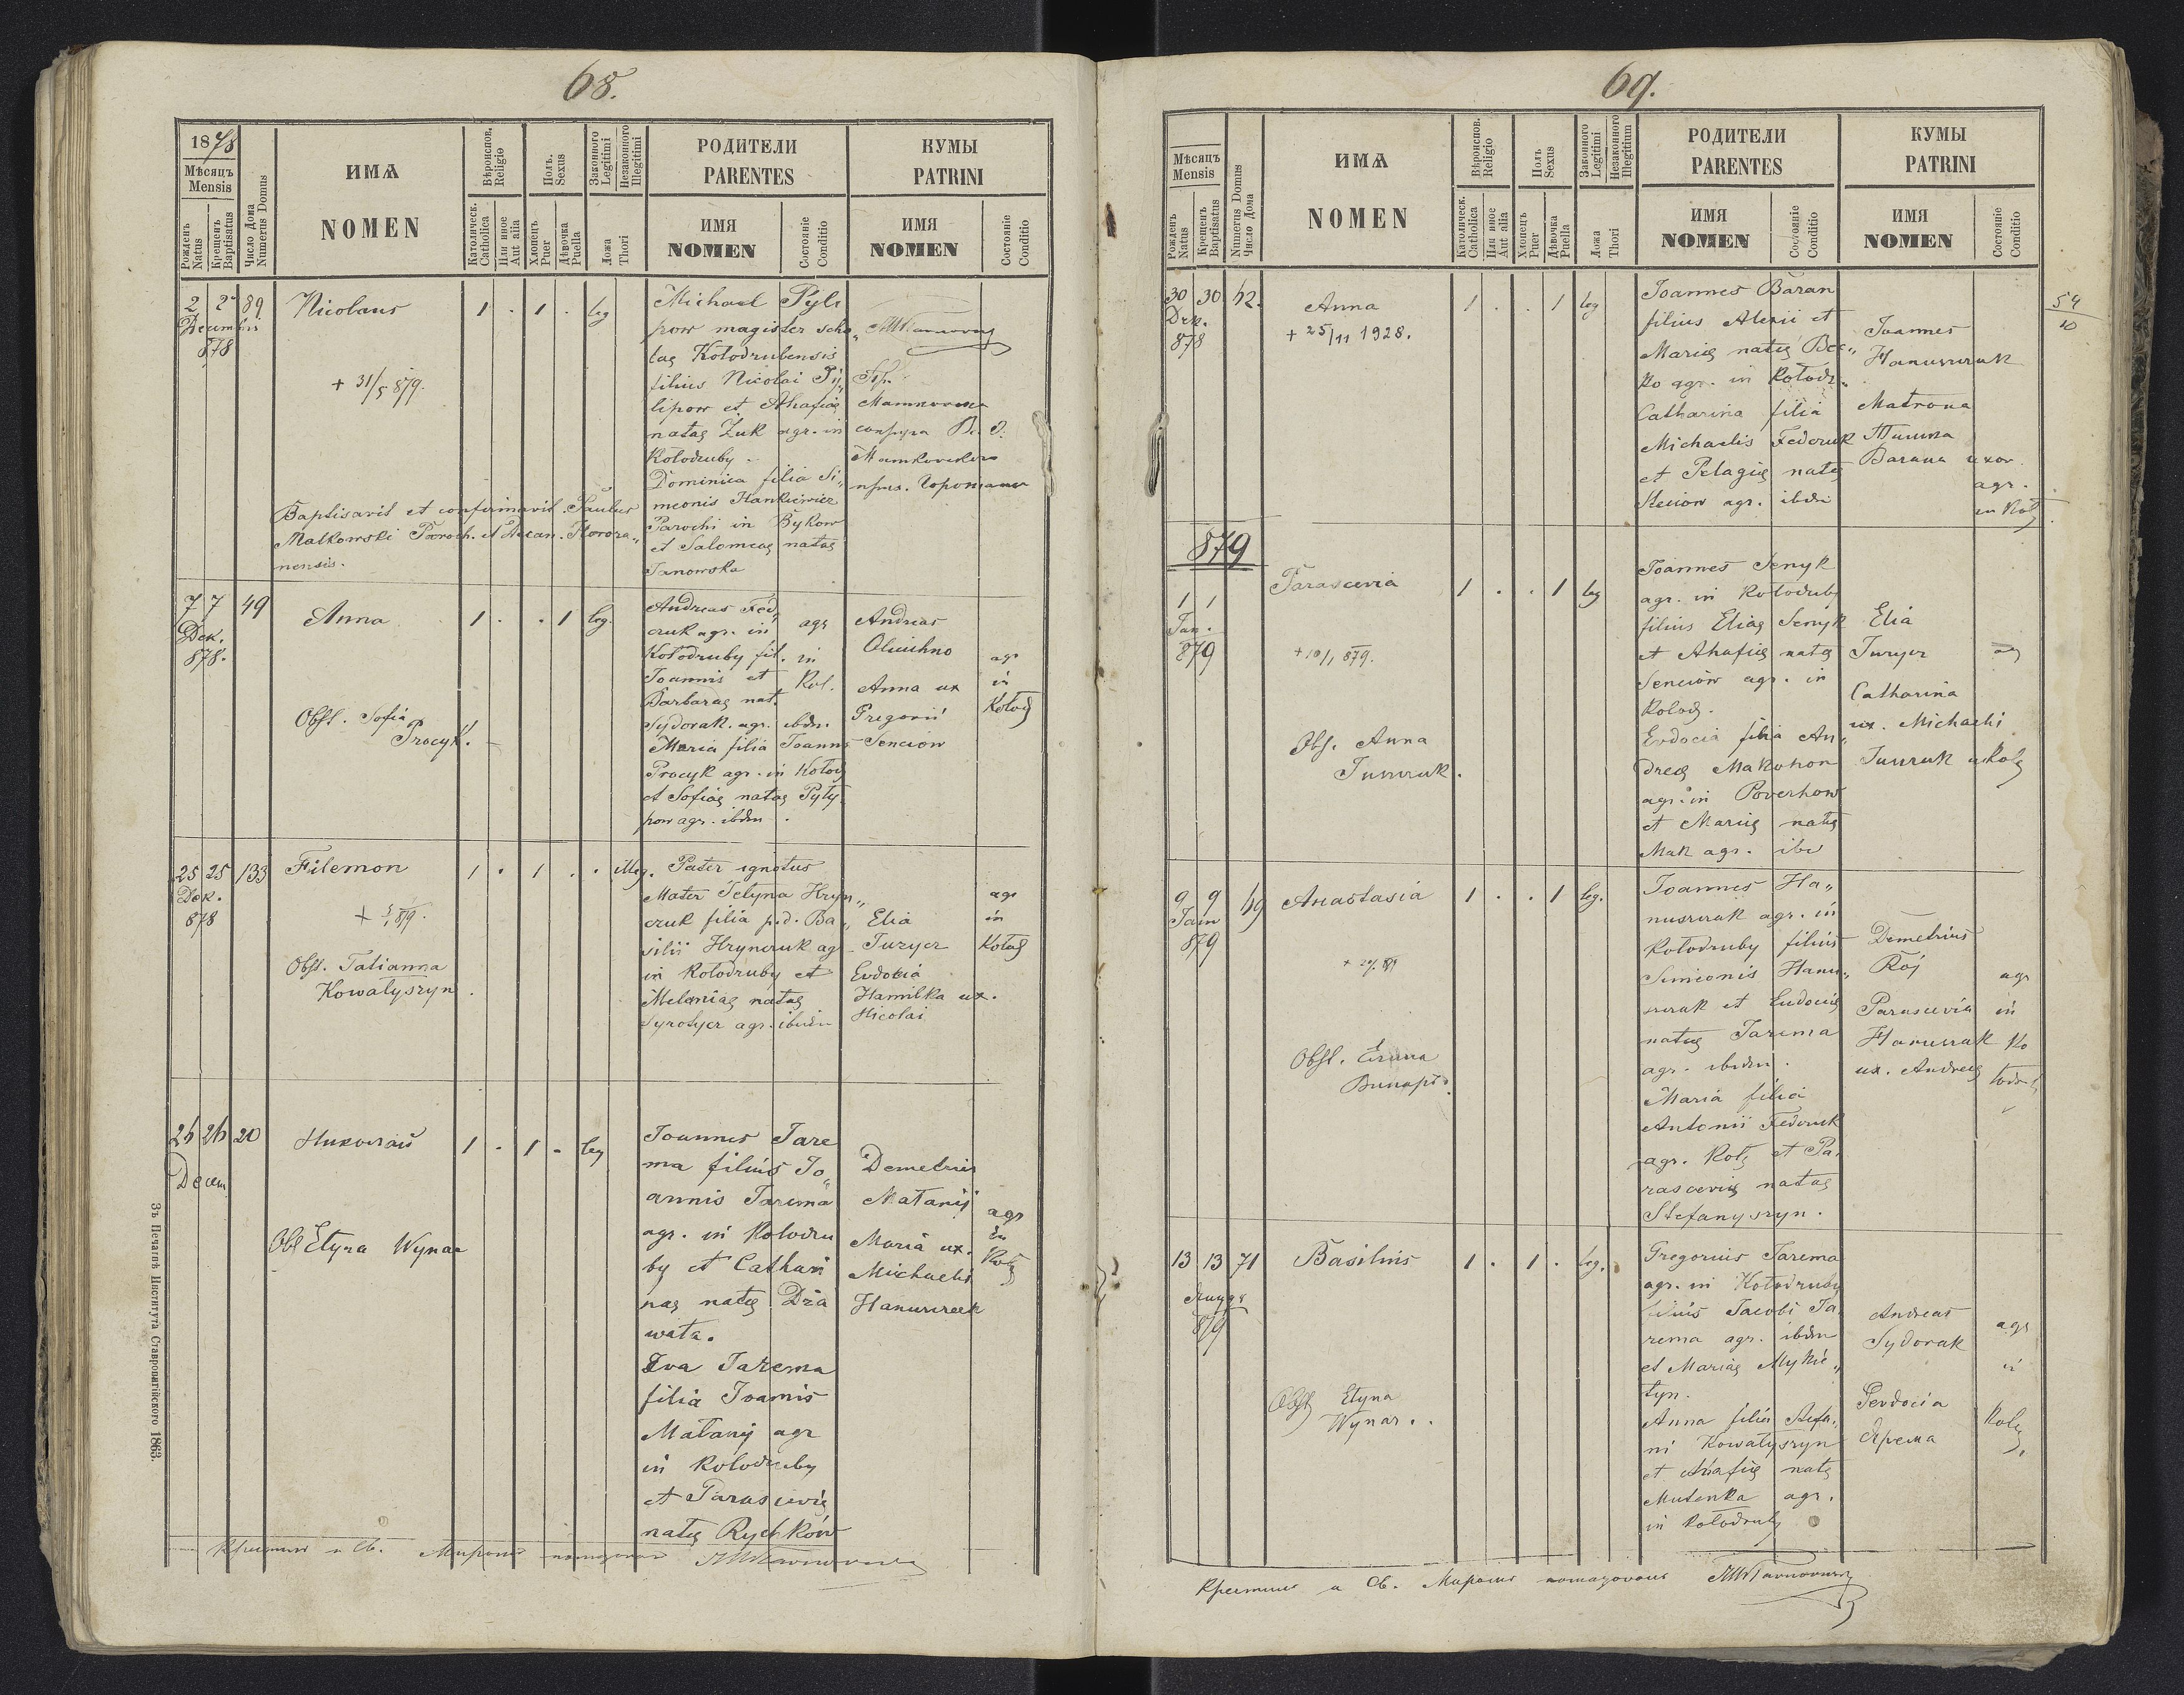 68.
1878
Мѣсяцъ
Mensis
Рожденъ
Natus
Крещенъ
Baptisatus
Число Дома
Numerus Domus
ИМѦ
NOMEN
Вѣроиспов.
Religio
Католическ.
Catholica
Или иное
Aut alia
Полъ.
Sexus
Хлопецъ
Puer
Дѣвочка
Puella
Законного
Legitimi
Незаконного
Illegitimi
Ложа
Thori
РОДИТЕЛИ
PARENTES
ИМЯ
NOMEN
Состоянїе
Conditio
КУМЫ
PATRINI
ИМЯ
NOMEN
Состоянїе
Conditio
2 2 89
Decembris
878
Nicolaus
1 . 1 . leg
+ 31/5 879.
Michael Pyli
pow magister scho„
lae Kołodrubensis
filius Nicolai Py„
lipow et Ahafiae
natae Żuk agr. in
Kołodruby.
Dominica filia Si„
meonis Hankiewicz
Parochi in Bykow
et Salomeae natae
Janowska
Baptisavit et confirmavit Paulus
Matkowski Paroch. et Decan. Horoża„
nensis.
7 7 49
Dek.
878.
Anna
1 . . 1 leg.
Obst. Sofia
Procyk.
Andreas Fed„
czuk agr. in
Kołodruby fil.
Joannis et
Barbarae nat.
Sydorak. agr. ibdm.
Maria filia Joannis
Procyk agr. in Kołod
et Sofiae natae Pyły
pow agr. ibdm.
agr
in
Kol.
Andreas
Oluichno
Anna ux
Gregorii
Senciow
agr
in
Kołod
25 25 133
Dek.
878
Filemon
1 . 1 . . illeg.
Obst. Tatianna
Kowałyszyn.
Pater ignotus
Mater Tetyna Hryn„
czuk filia p.d. Ba„
silii Hrynczuk agr
in Kołodruby et
Melaniae natae
Syrotycz agr. ibidm
Elia
Jurycz
Evdokia
Hamilka ux.
Nicolai
agr
in
Kołod
26 26 20
Decem
Николай
1 . 1 . leg
Obst Etyna Wynar
Joannes Jare
ma filius Jo„
annis Jarema
agr. in Kołodru
by et Cathari
nae natae Dża
wała.
Eva Jarema
filia Joannis
Matanij agr
in Kołodruby
et Parasceviae
natae Rychków
Demetrius
Matanij
Maria ux.
Michaelis
Hanuszczak
agr
in
Kołod
Крестилъ и Св. Миромъ помазовалъ
Зъ Печатнѣ Института Ставропигійского 1863.
69.
Мѣсяцъ
Mensis
Рожденъ
Natus
Крещенъ
Baptisatus
Numerus Domus
Число Дома
ИМѦ
NOMEN
Вѣроиспов.
Religio
Католическ.
Catholica
Или иное
Aut alia
Полъ
Sexus
Хлопецъ
Puer
Дѣвочка
Puella
Законного
Legitimi
Незаконного
Illegitimum
Ложа
Thori
РОДИТЕЛИ
PARENTES
ИМЯ
NOMEN
Состоянїе
Conditio
КУМЫ
PATRINI
ИМЯ
NOMEN
Состоянїе
Conditio
30 30 42.
Dek.
878
Anna
+ 25/11 1928.
1 . . 1 leg
Joannes Baran
filius Alexii et
Mariae natae Bec„
ko agr. in Kołodr„
Catharina filia
Michaelis Fedczuk
et Pelagiae natae
Steciow agr. ibdm
Joannes
Hanuszczak
Matrona
Barana uxor
agr.
in Koł
54
10
879
1 1
Jan.
879
Parascevia
1 . . 1 leg
+ 10/1 879.
Obs. Anna
Joannes Senyk
agr. in Kołodruby
filius Eliae Senyk
et Ahafiae natae
Senciow agr. in
Kołod.
Evdocia filia An„
dreae Makohon
agr. in Powerhow
et Mariae natae
Mak agr. ibd
Elia
Jurycz
Catharina
ux. Michaeli
9 9 49
Jan
879
Anastasia
1 . . 1 leg.
Obst.
Винаръ.
Joannes Ha„
nuszczak agr. in
Kołodruby filius
Simionis Hanu„
szczak et Eudociae
natae Jarema
agr. ibidm.
Maria filia
Antonii Fedczuk
agr. Koł et Pa„
rasceviae natae
Stefanyszyn.
Demetrius
Rój
Parascevia
Hanuszczak
ux. Andreae
agr
in
Ko
łodr
13 13 71
879
Basilius
1 . 1 . leg.
Obst Etyna
Wynar..
Gregorius Jarema
agr. in Kołodruby
filius Jacobi Ja„
rema agr. ibdm
et Mariae Mykie„
tyn.
Anna filia Stefa„
ni Kowałyszyn
et Ahafiae natae
Mutenka agr.
in Kołodruby
Andreas
Sydorak
Jevdocia
Ярема
agr
in
Koł
Крестилъ и Св. Миромъ помазовалъ